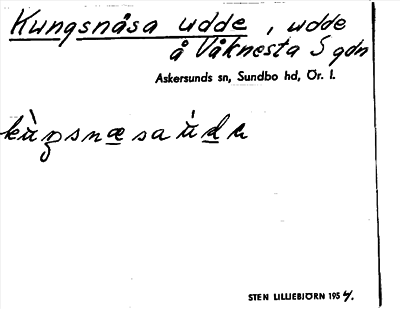 Kungsnåsa udde, udde
å Våknesta S gdn
Askersunds sn, Sundbo hd, Ör. l.
kùŋsnæsaùdɛ
STEN LILLIEBJÖRN 1954.